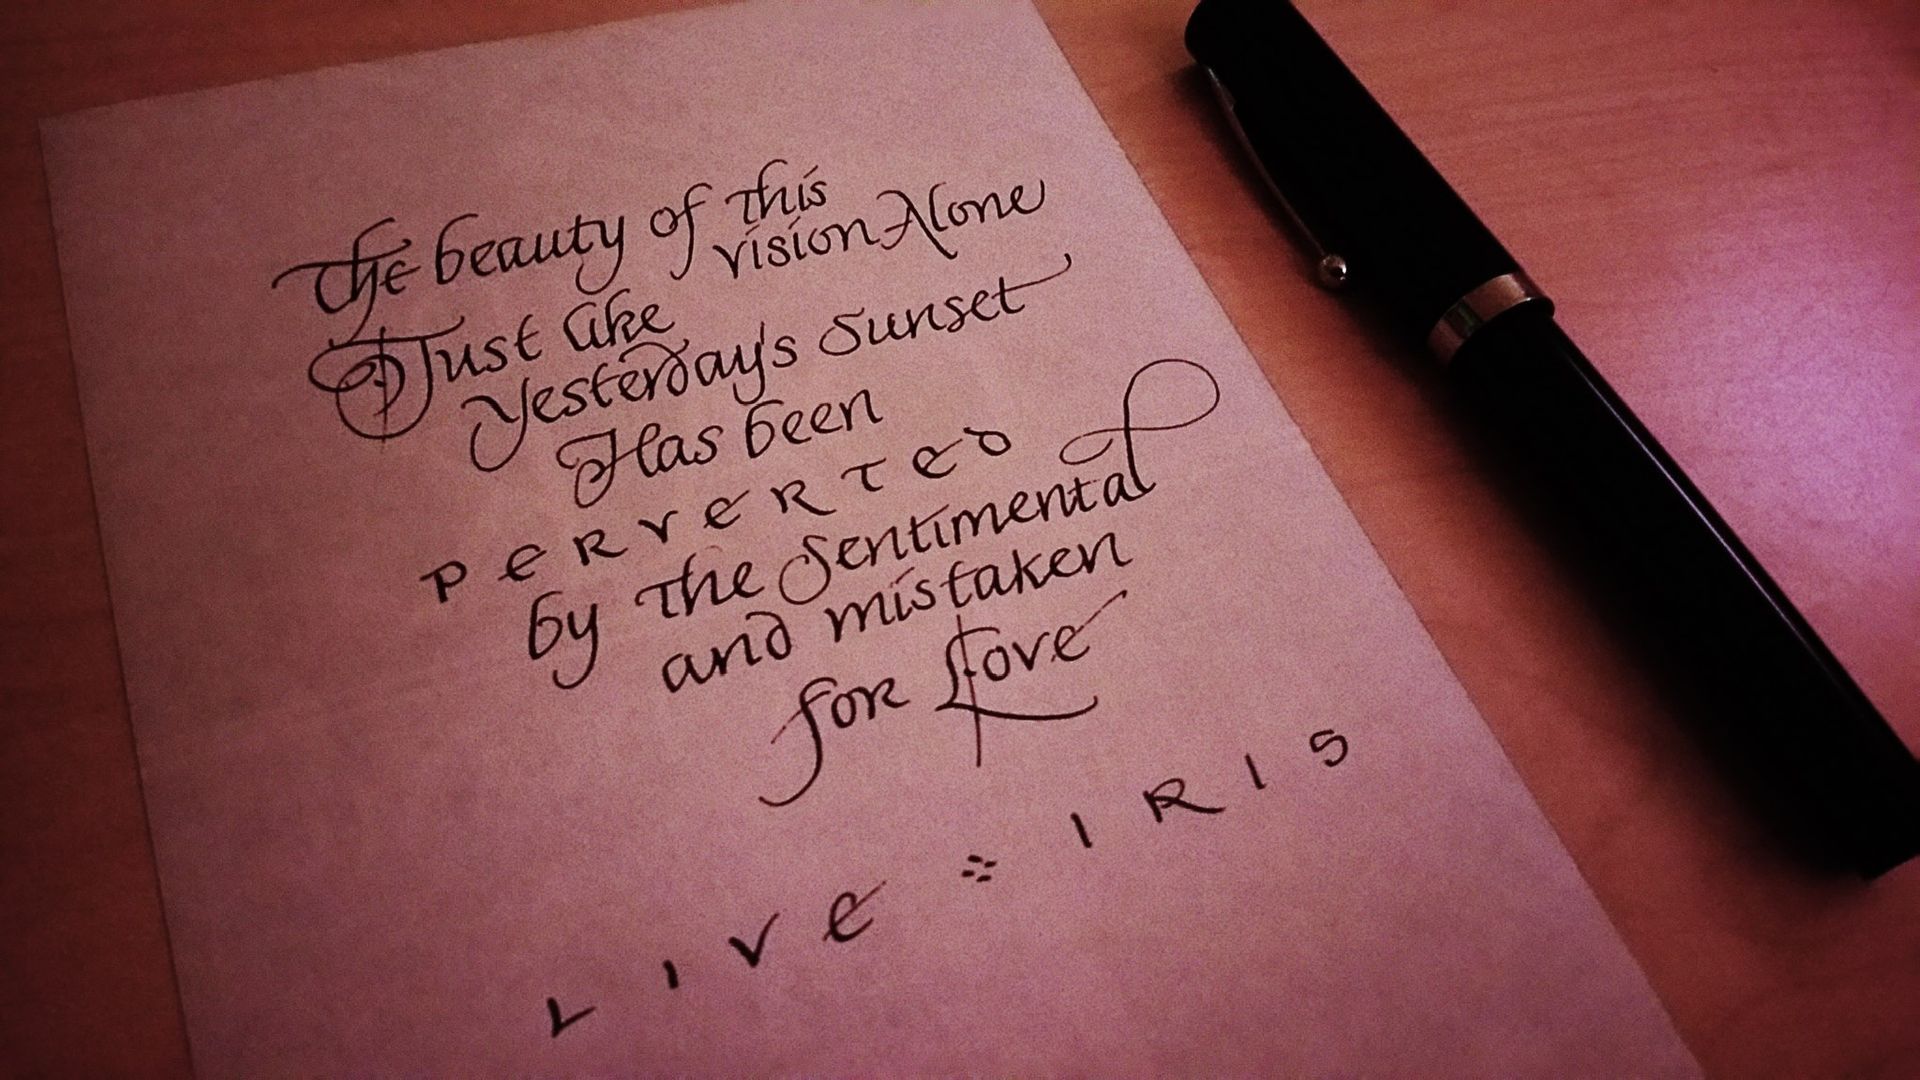 The beauty of this
vision Alone
Just like
Yesterday's Sunset
Has been
PeRVeRTeD
by The Sentimental
and mistaken
for Love
LIVe IRIS